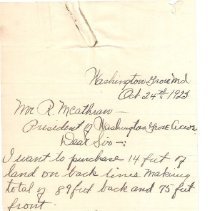 Washington Grove Md
Oct 24th 1923
Mr. R. McCathran
President of Washington Grove
Dear Sir—:
I want to purchase 14 feet of
land on back lines making
total of 89 feet back and 75 feet
front